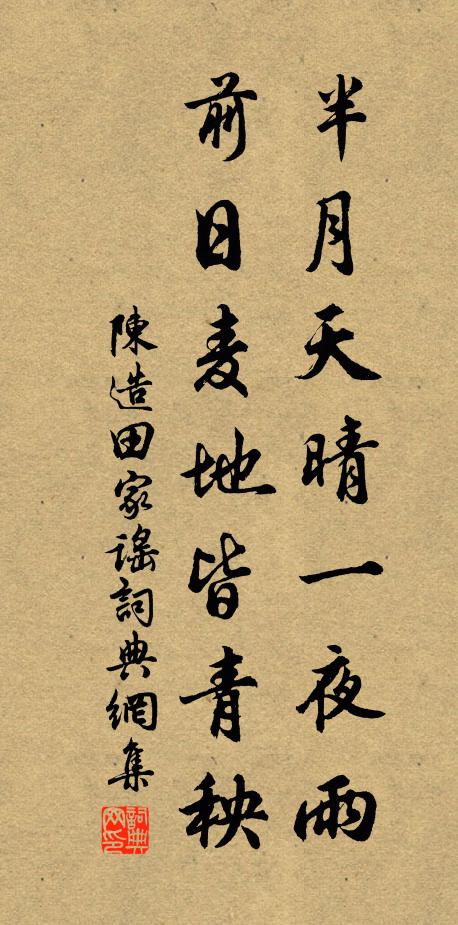 半月天晴一夜雨
前日麦地皆青秧
陳造田家謠詞典網集
詞典网印